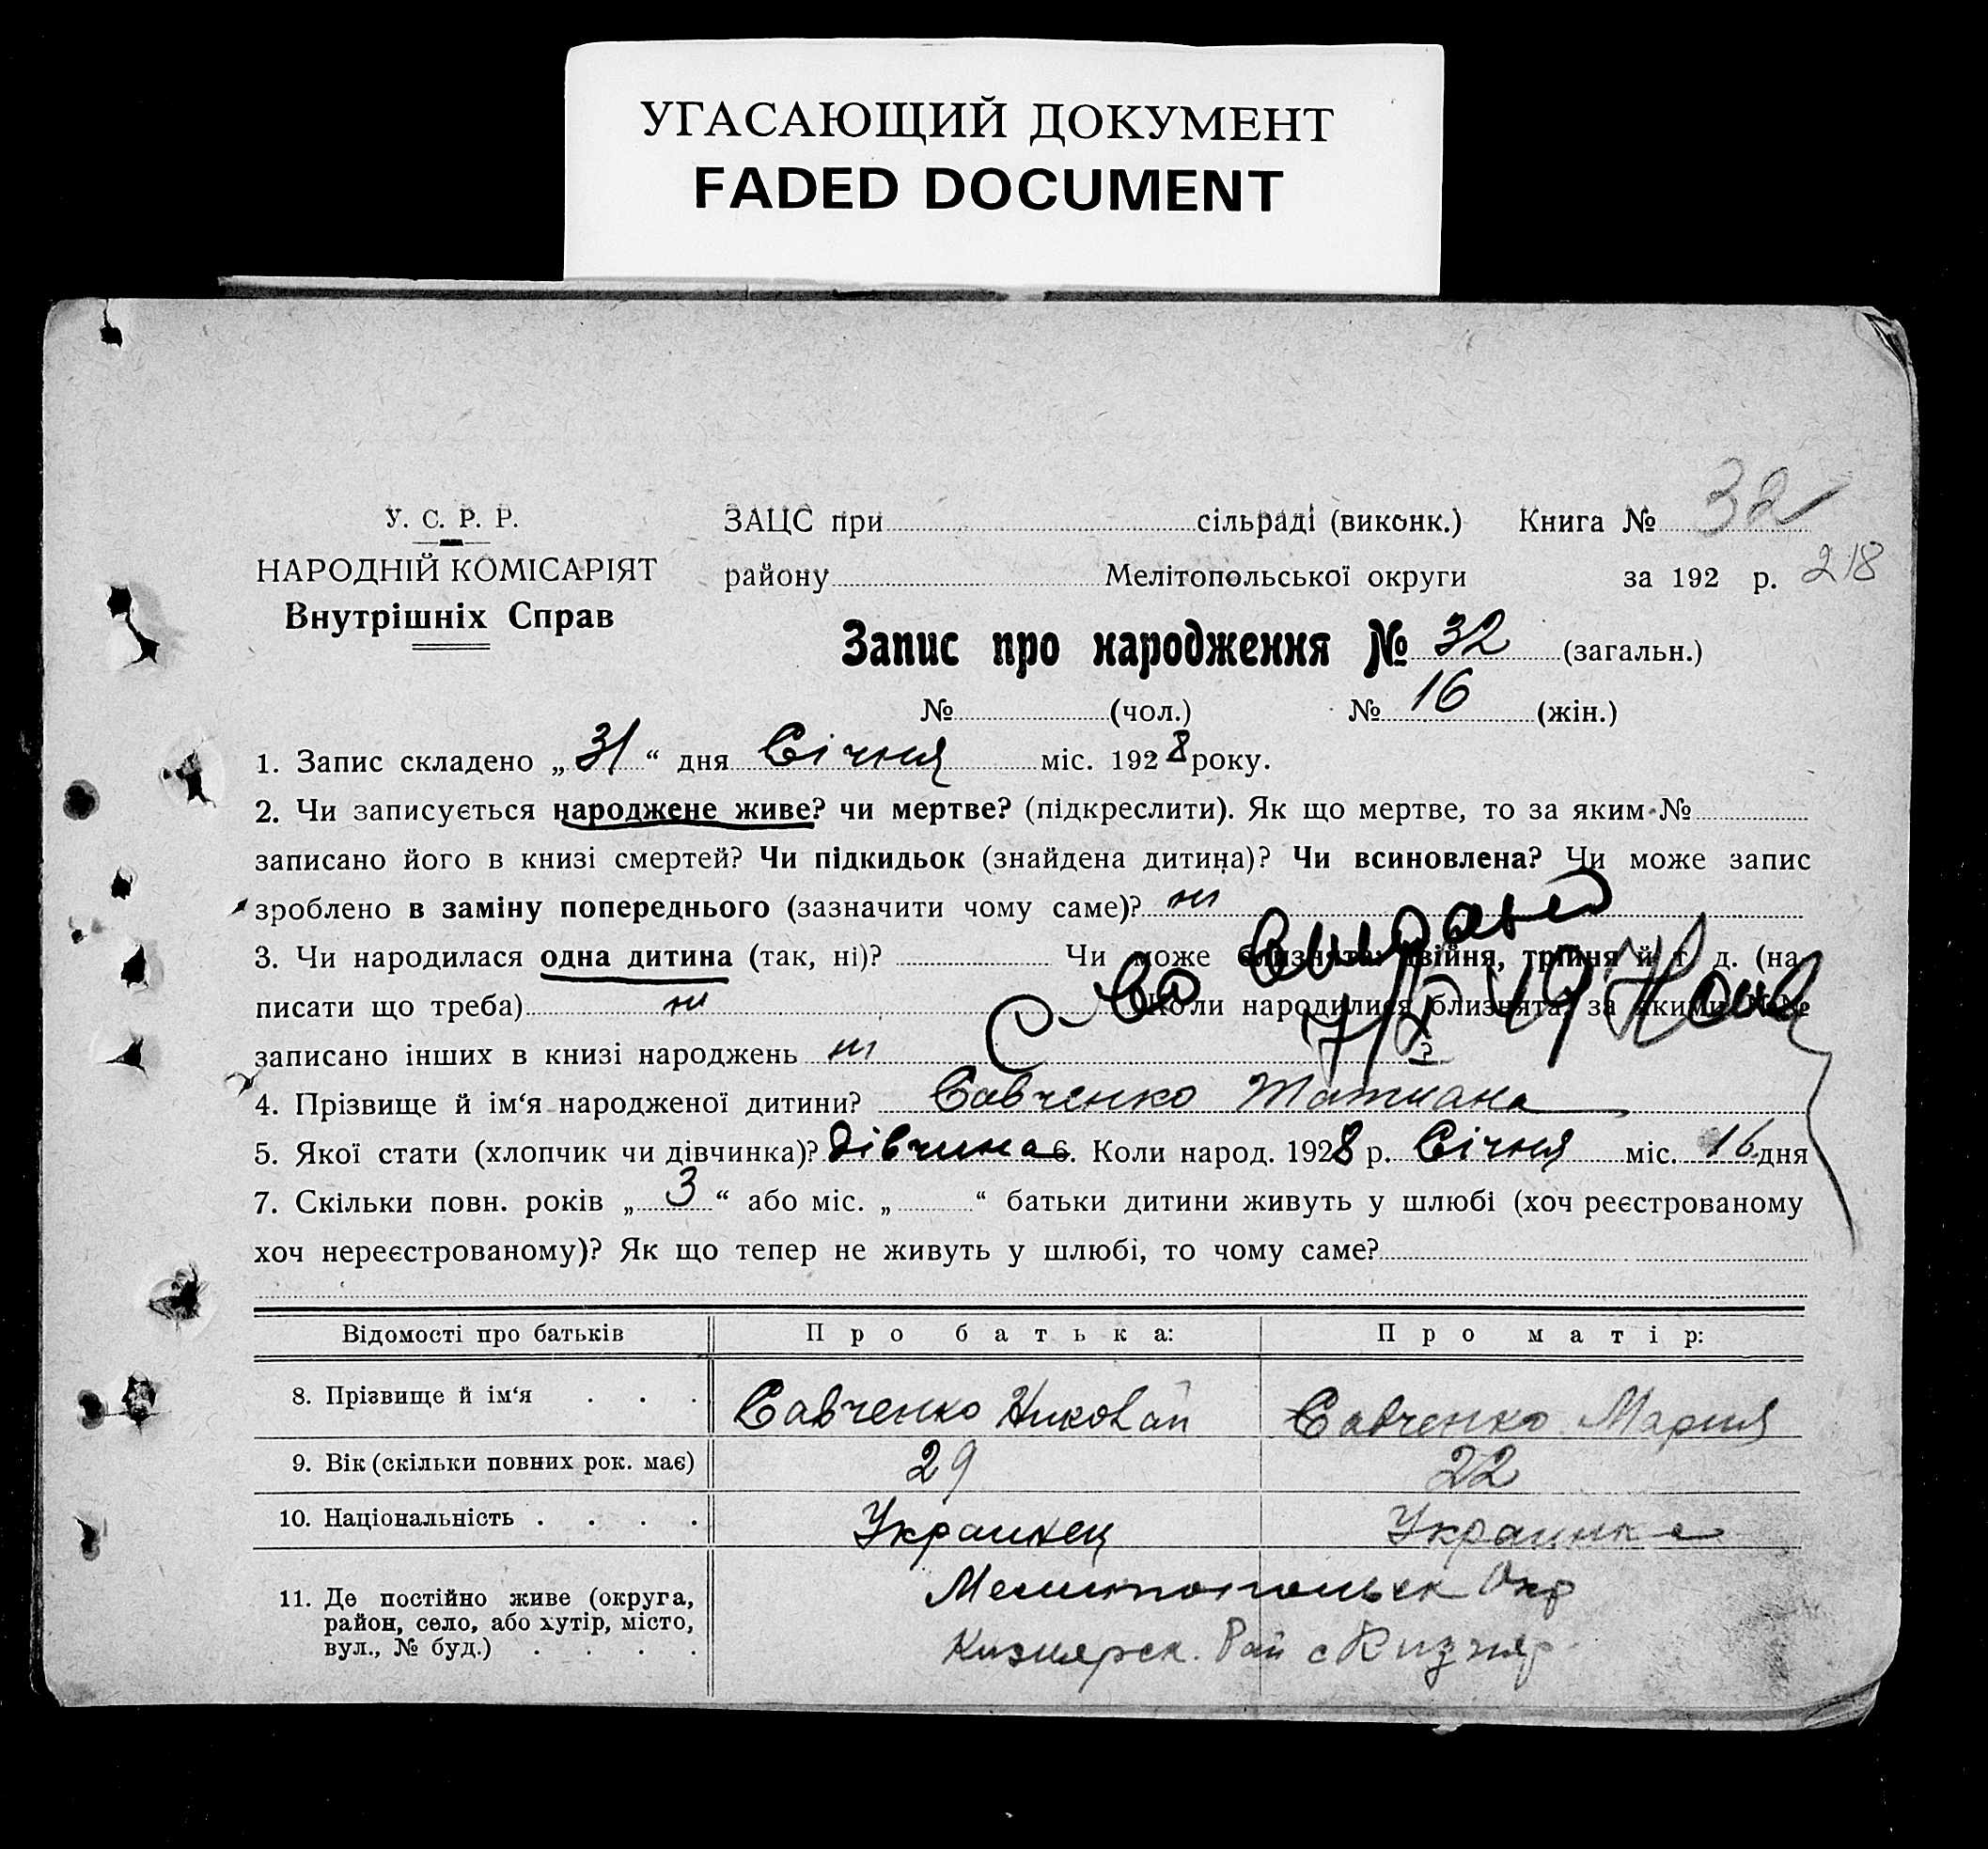 УГАСАЮЩИЙ ДОКУМЕНТ
FADED DOCUMENT
У. С. Р. Р.
НАРОДНІЙ КОМІСАРІЯТ
Внутрішніх Справ
ЗАЦС при сільраді (виконк.) Книга № 32
району Мелітопольської округи за 192 р. 218
Запис про народження № 32 (загальн.)
№ (чол.) № 16 (жін.)
1. Запис складено „31“ дня Січня міс. 1928 року.
2. Чи записується народжене живе? чи мертве? (підкреслити). Як що мертве, то за яким №
записано його в книзі смертей? Чи підкидьок (знайдена дитина)? Чи всиновлена? Чи може запис
зроблено в заміну попереднього (зазначити чому саме)? ні
3. Чи народилася одна дитина (так, ні)? Чи може близнята: двійня, трійня й т. д. (на-
писати що треба) ні Коли народилися близнята, за якими №№
записано інших в книзі народжень ні ?
С-во выдано
4. Прізвище й ім‘я народженої дитини? Савченко Татиана
5. Якої стати (хлопчик чи дівчинка)? дівчина 6. Коли народ. 1928 р. Січня міс. 16 дня
7. Скільки повн. років „3“ або міс. „ “ батьки дитини живуть у шлюбі (хоч реєстрованому
хоч нереєстрованому)? Як що тепер не живуть у шлюбі, то чому саме?
Відомості про батьків Про батька: Про матір:
8. Прізвище й ім‘я . . . Савченко Николай Савченко Мария
9. Вік (скільки повних рок. має) 29 22
10. Національність . . . . Украинец Украинка
11. Де постійно живе (округа,
район, село, або хутір, місто,
вул., № буд.) . . . .
Мелитопольск Окр
Кизиярск. Рай с Кизияр